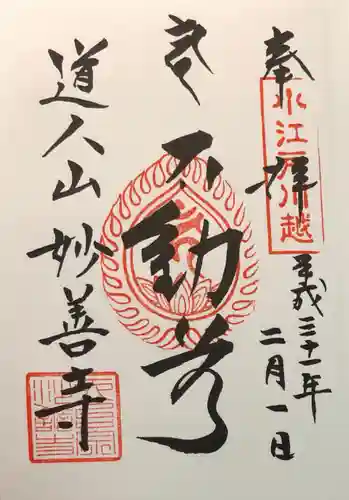 奉拝
小江戸川越
平成三十一年
二月一日
不動尊
道人山
妙善寺